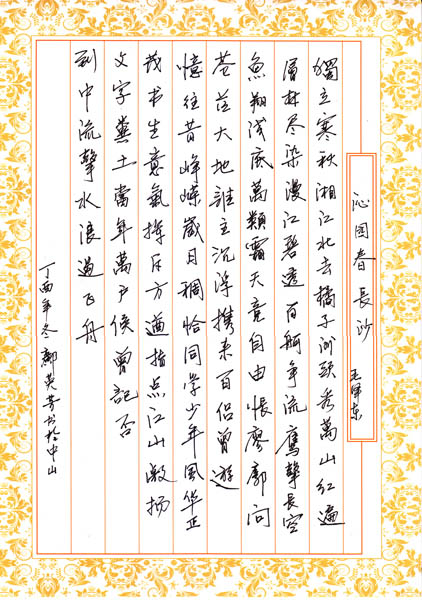 沁园春 長沙 毛泽东
獨立寒秋湘江北去橘子洲頭看萬山红遍
層林尽染漫江碧透百舸争流鷹擊長空
魚翔浅底萬類霜天竟自由悵廖廓问
苍茫大地誰主沉浮携来百侣曾遊
憶往昔峥嵘歲月稠恰同学少年風华正
茂书生意氣挥斥方遒指点江山激扬
文字粪土當年萬户侯曾記否
到中流擊水浪遏飞舟
丁酉年冬鄭英芳书於中山